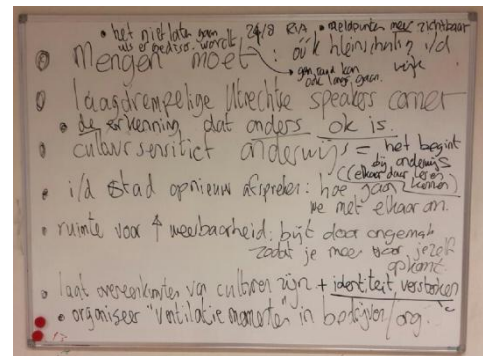 • het niet laten gaan
als er gediscr. wordt
24/8 RIA
• meldpunten meer zichtbaar
Mengen moet: óók kleinschalig i/d wijk
gen. raad kan
ook langs gaan.
laagdrempelige Utrechtse speakers corner
• de erkenning dat anders ok is.
cultuursensitief onderwijs = het begint
bij onderwijs
(elkaar daar leren
kennen)
• i/d stad opnieuw afspreken: hoe gaan
we met elkaar om.
• ruimte voor ↑ weerbaarheid: bijt door ongemak
zodat je meer voor jezelf
opkomt.
• laat overeenkomsten van culturen zijn + identiteit versterken
• organiseer "ventilatie momenten" in bedrijven/org.